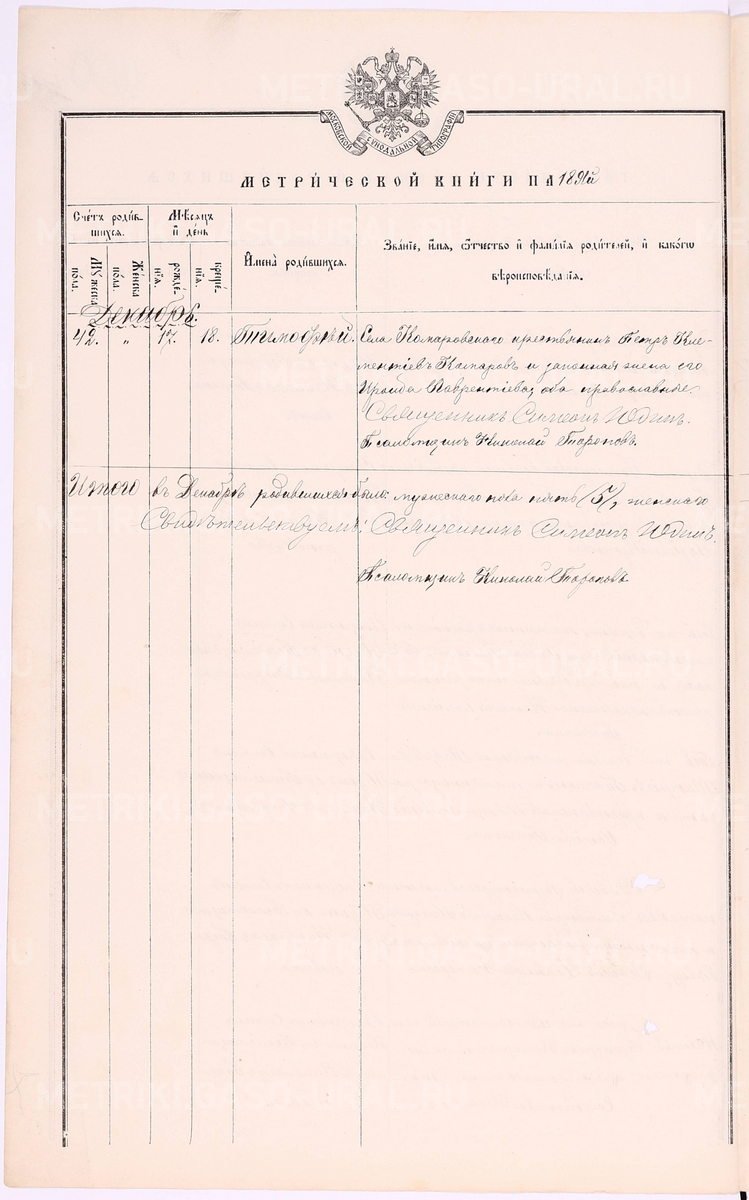 МОСКОВСКОЙ СУНОДАЛЬНОЙ ТИПОГРАФІИ
МЕТРИ́ЧЕСКОЙ КНИ́ГИ НА 189
Счетъ роди́в-
шихся.
Мѣсяцъ
и день
Имена̀ роди́вшихся.
Зва́ніе, и́мя, ѻ҆́тчество и фами́лія роди́телей, и како́гѡ
вѣроисповѣ́данія.
Му́жеска
по́ла.
Же́нска
по́ла.
рожде́-
нія.
креще́-
нія.
Декабрь.
42. " 17. 18. Тимоѳей. Села Комаровскаго крестьянинъ Петръ Кле-
ментіевъ Комаровъ и законная жена его
Ираида Лаврентіева, оба православные.
Священникъ Симеонъ Юдинъ.
Псаломщикъ Николай Тороповъ.
Итого въ Декабрѣ родившихся было: мужескаго пола пять /5/, женскаго
Свидѣтельствуемъ: Священникъ Симеонъ Юдинъ.
Псаломщикъ Николай Тороповъ.
METRIKI.GASO-URAL.RU